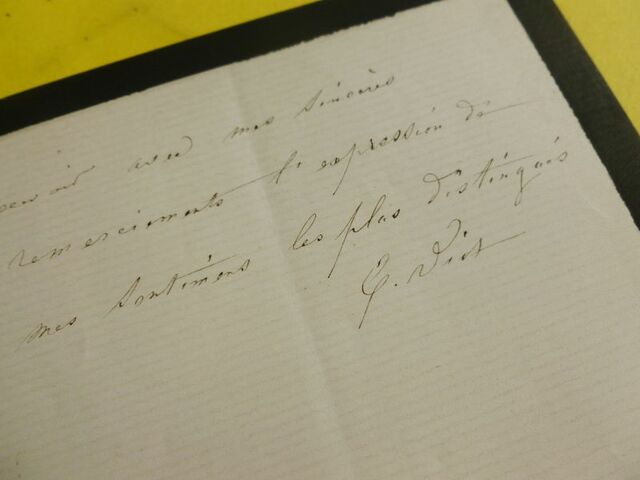 avec mes sincères
remerciements l'expression de
mes sentiments les plus distingués